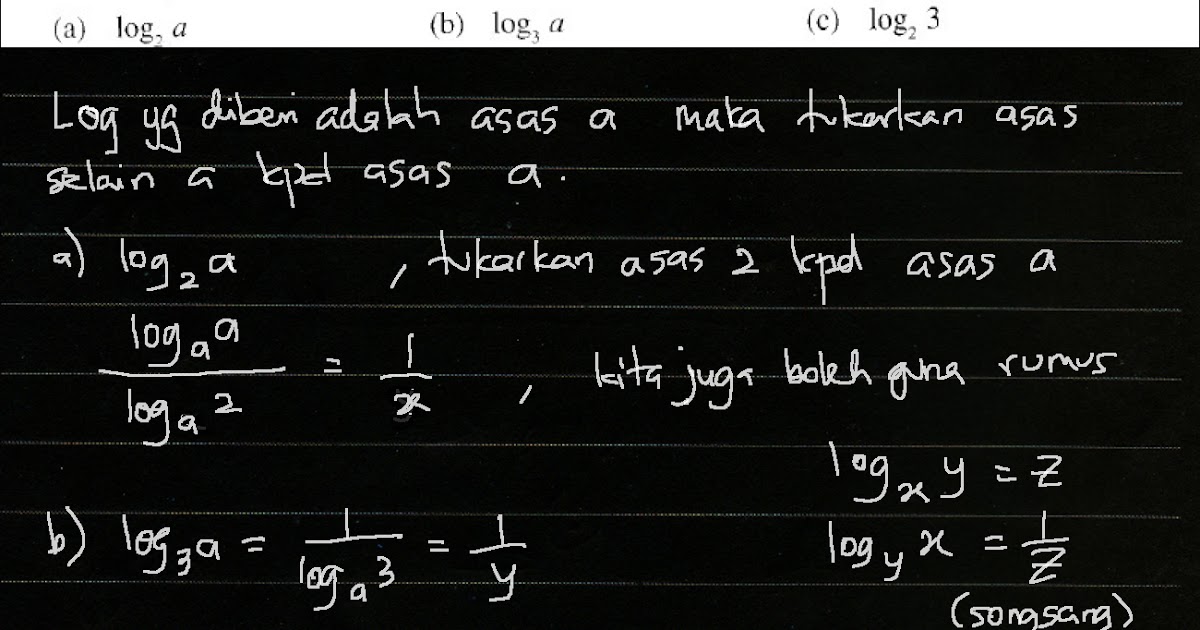 (a) log₂ a (b) log₃ a (c) log₂ 3
Log yg diberi adalah asas a maka tukarkan asas
selain a kpd asas a.
a) log₂ a , tukarkan asas 2 kpd asas a
logₐ a / logₐ 2 = 1/x , kita juga boleh guna rumus
logₓ y = z
b) log₃ a = 1 / logₐ 3 = 1/y
log_y x = 1/z
(songsang)